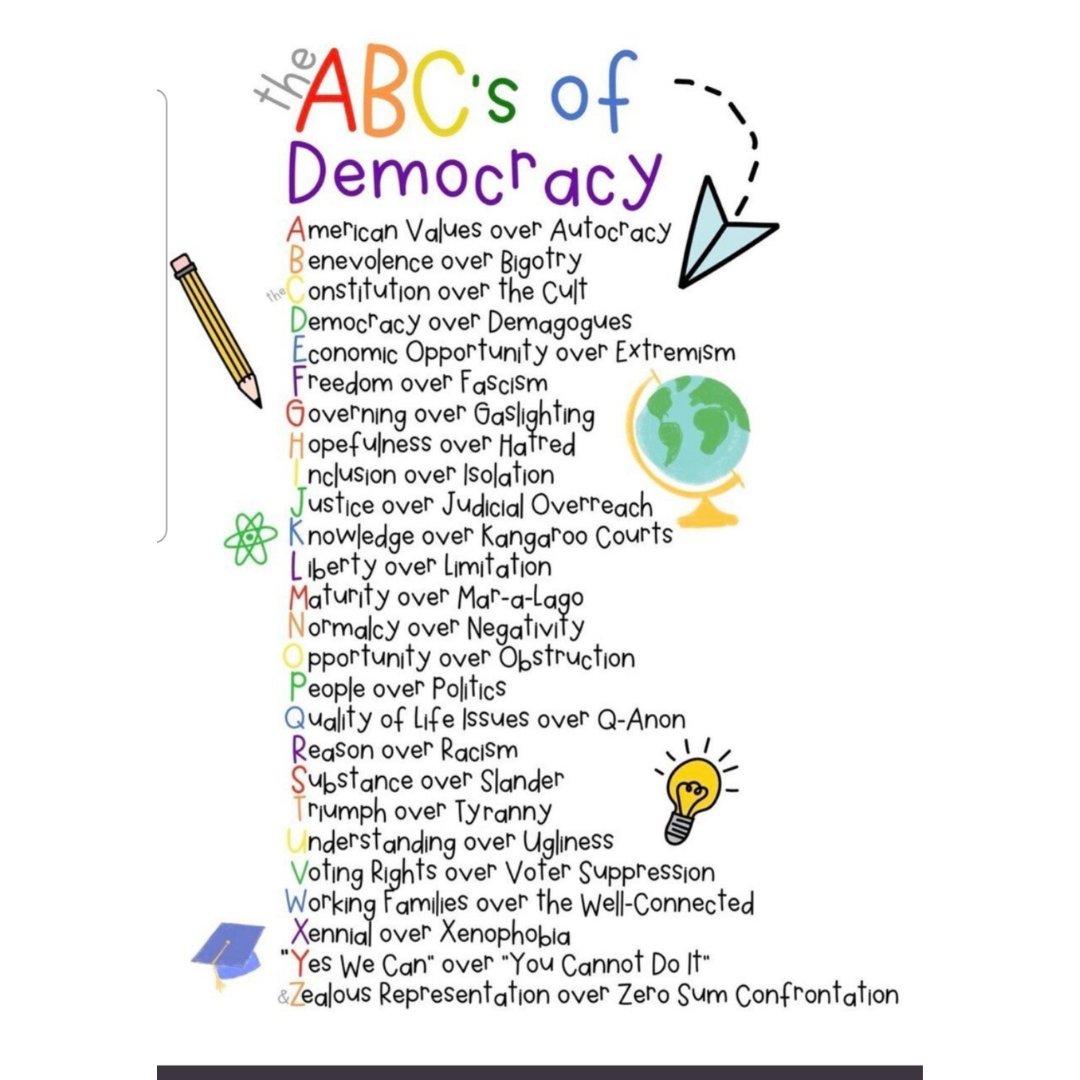 the ABC's of
Democracy
American Values over Autocracy
Benevolence over Bigotry
the Constitution over the Cult
Democracy over Demagogues
Economic Opportunity over Extremism
Freedom over Fascism
Governing over Gaslighting
Hopefulness over Hatred
Inclusion over Isolation
Justice over Judicial Overreach
Knowledge over Kangaroo Courts
Liberty over Limitation
Maturity over Mar-a-Lago
Normalcy over Negativity
Opportunity over Obstruction
People over Politics
Quality of Life Issues over Q-Anon
Reason over Racism
Substance over Slander
Triumph over Tyranny
Understanding over Ugliness
Voting Rights over Voter Suppression
Working Families over the Well-Connected
Xennial over Xenophobia
"Yes We Can" over "You Cannot Do It"
&Zealous Representation over Zero Sum Confrontation